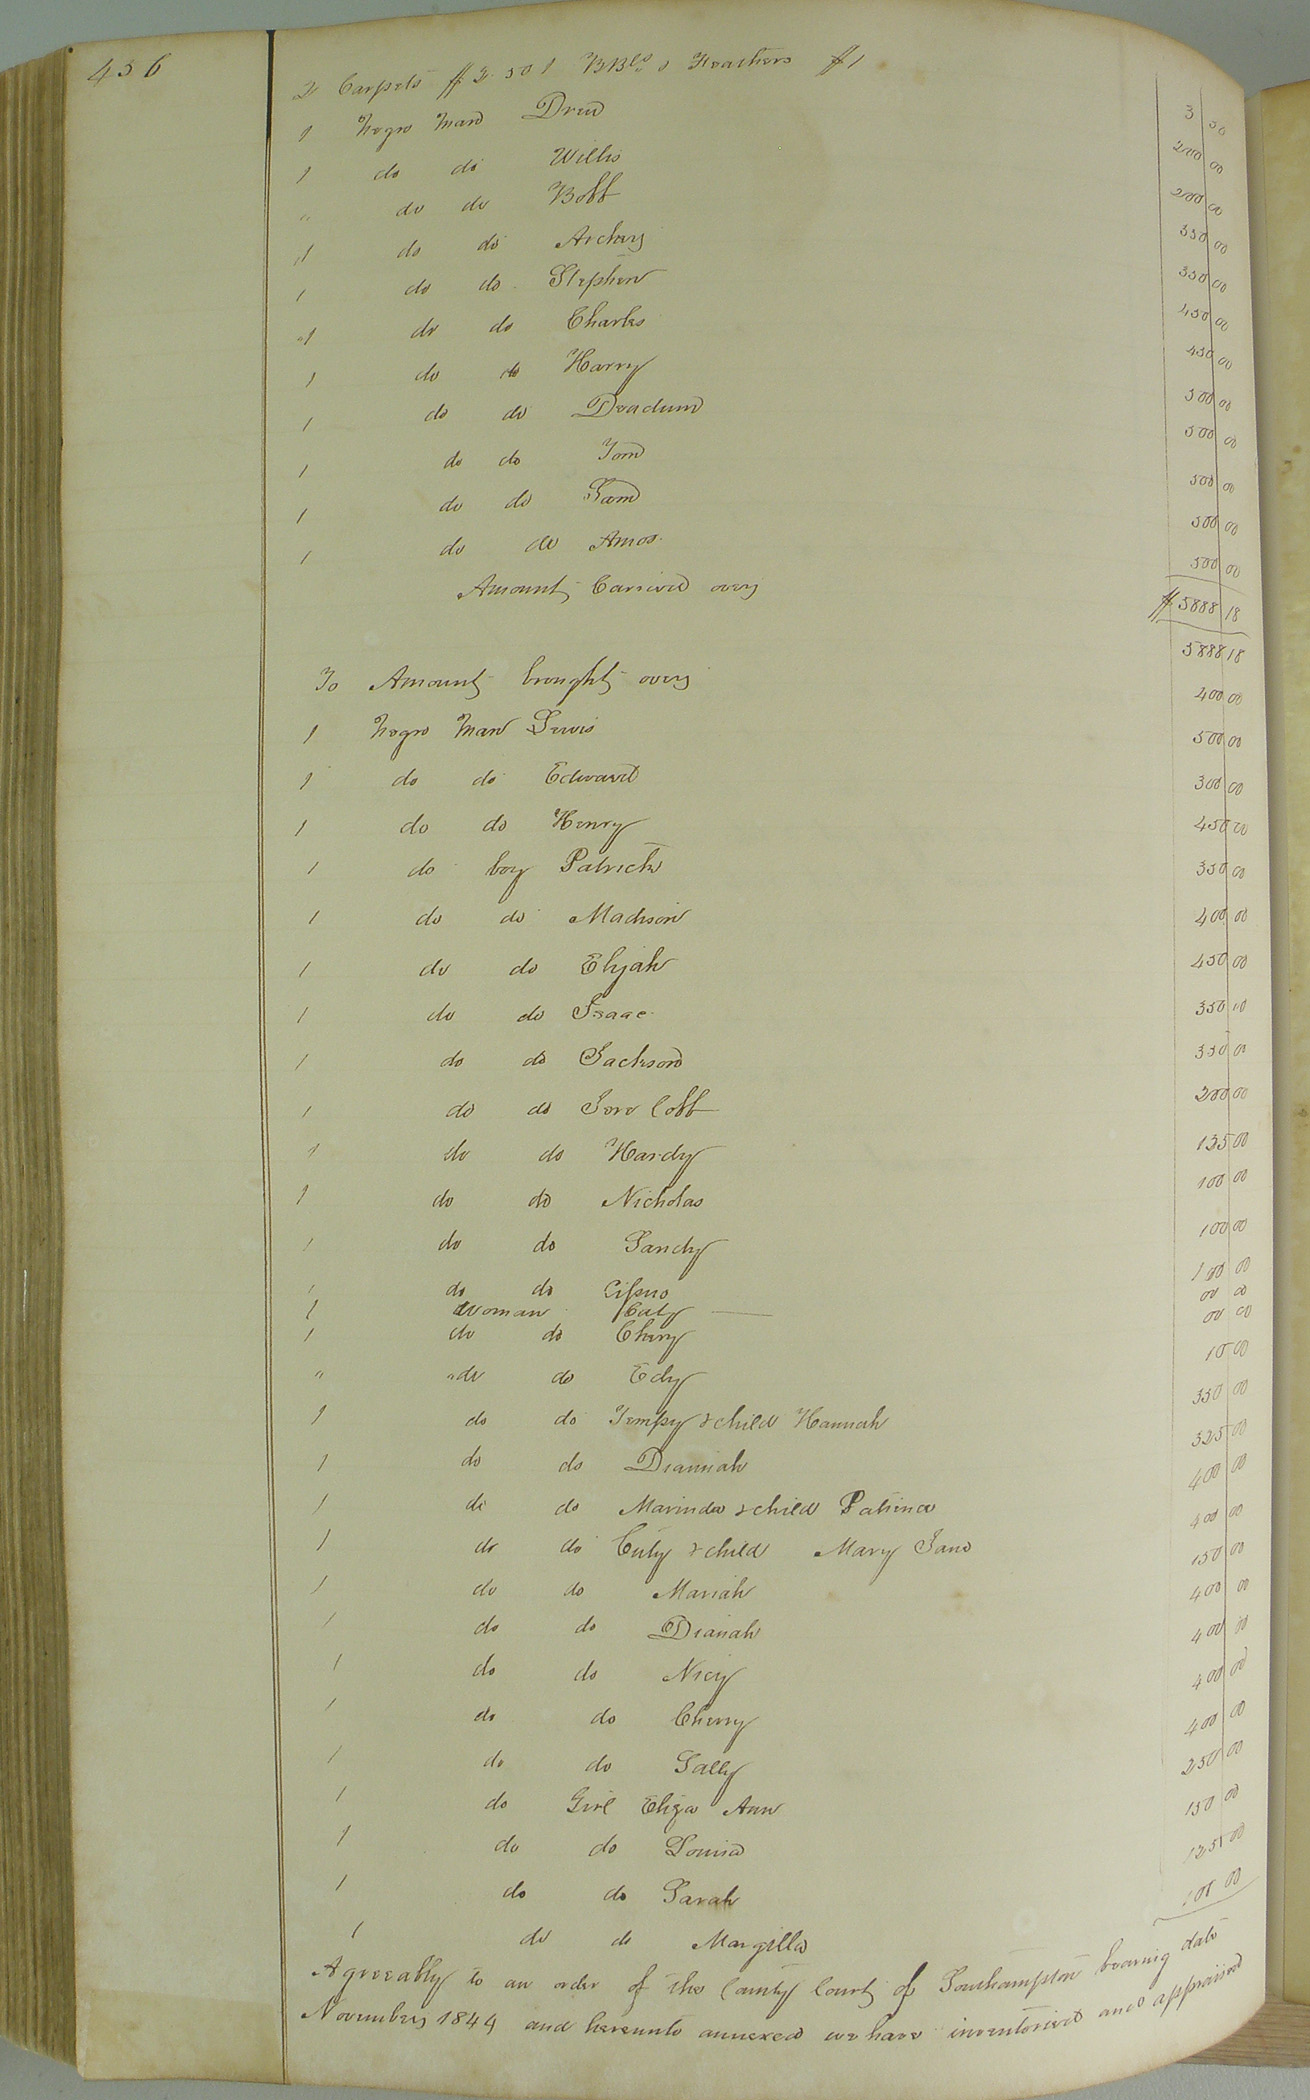 436
2 Carpets $2.50 1 BBls & Feathers $1 3 50
1 Negro Man Drew 200 00
1 do do Willis 200 00
" do do Bobb 350 00
1 do do Archey 350 00
1 do do Stephen 450 00
"1 do do Charles 450 00
1 do do Harry 500 00
1 do do Deadum 500 00
1 do do Tom 500 00
1 do do Sam 500 00
1 do do Amos 500 00
Amount Carried over $ 5888 18
To Amount brought over 5888 18
1 Negro Man Lewis 400 00
1 do do Edward 500 00
1 do do Henry 300 00
1 do boy Patrick 450 00
1 do do Madison 350 00
1 do do Elijah 400 00
1 do do Isaac 450 00
1 do do Jackson 350 00
1 do do Jere Cobb 350 00
1 do do Hardy 200 00
1 do do Nicholas 135 00
1 do do Sandy 100 00
1 do do Cipio 100 00
100 00
1 Woman Caty — 00 00
1 do do Chery 00 00
" "do do Edy 10 00
1 do do Tempy & child Hannah 350 00
1 do do Dianniah 325 00
1 do do Marinda & child Patina 400 00
1 do do Cuty & child Mary Jane 400 00
1 do do Mariah 150 00
1 do do Dianah 400 00
1 do do Nicy 400 00
1 do do Cherry 400 00
1 do do Sally 400 00
1 do Girl Eliza Ann 250 00
1 do do Louisa 150 00
1 do do Sarah 125 00
1 do do Margilla 100 00
Agreeably to an order of the County Court of Southampton bearing date
November 1844 and hereunto annexed we have inventoried and appraised